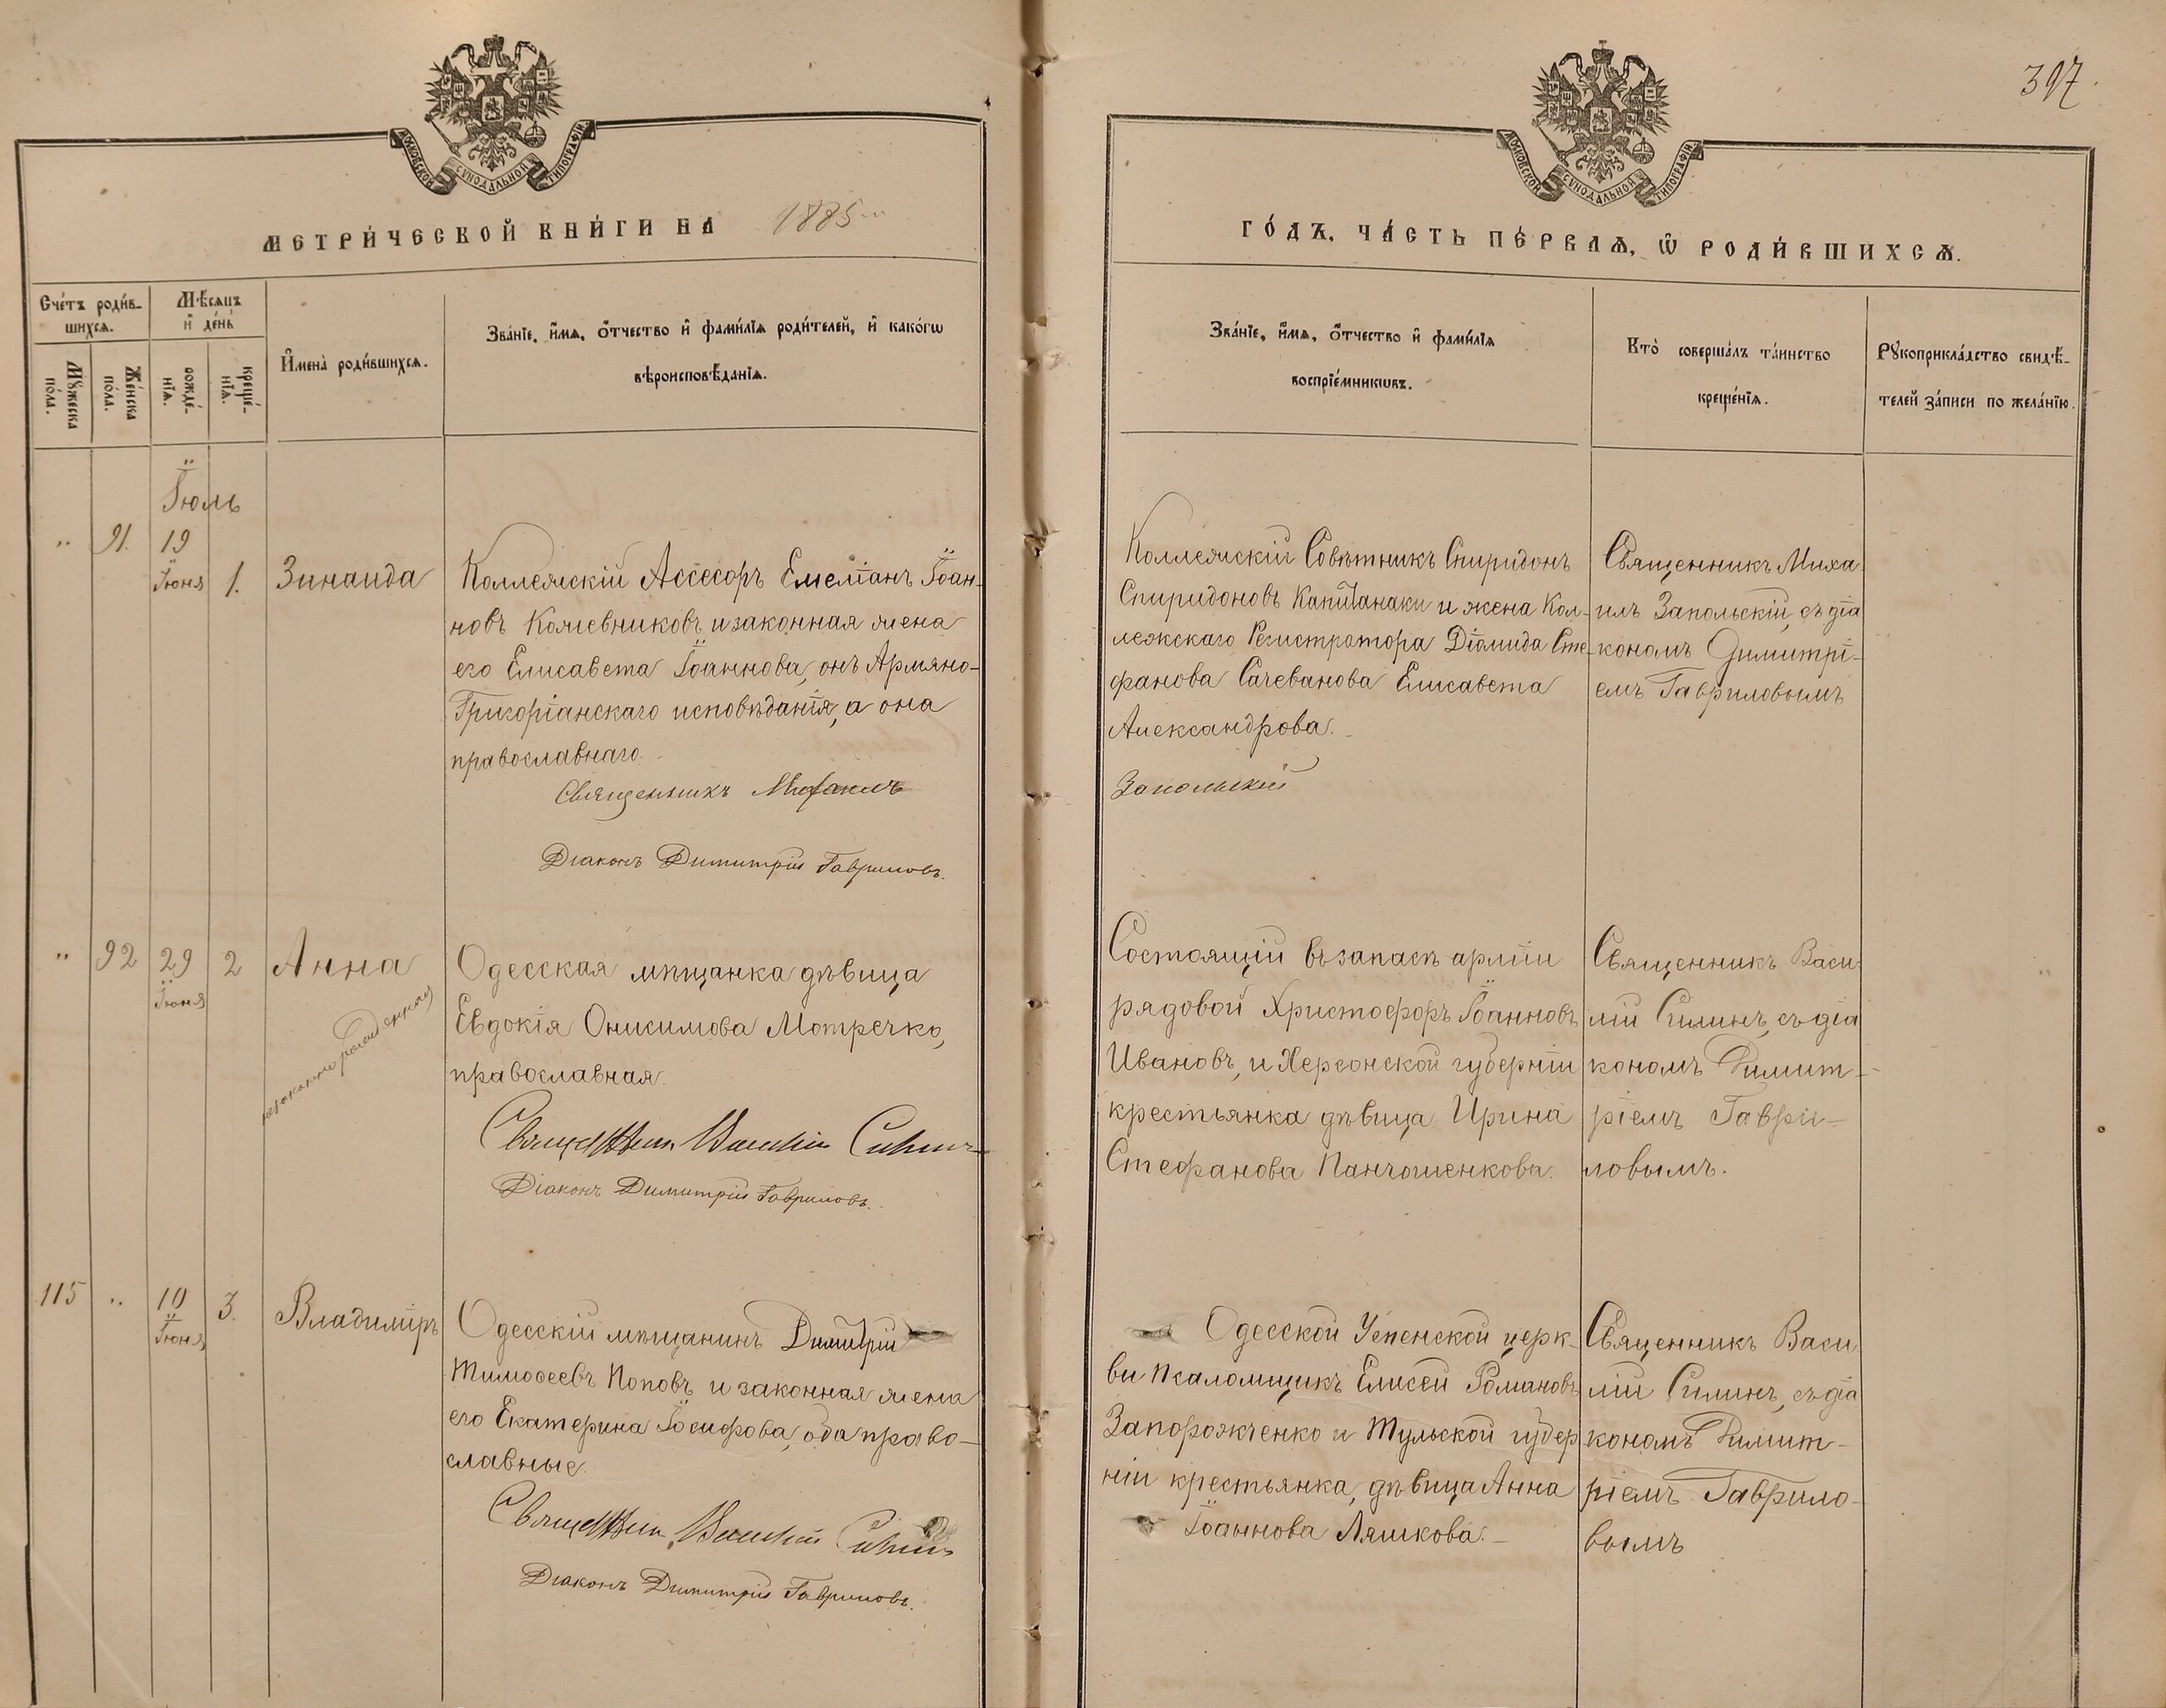 397.
МОСКОВСКОЙ СУНОДАЛЬНОЙ ТИПОГРАФІИ
МОСКОВСКОЙ СУНОДАЛЬНОЙ ТИПОГРАФІИ
МЕТРИ́ЧЕСКОЙ КНИ́ГИ НА 1885
ГО́ДЪ, ЧА́СТЬ ПЕ́РВАѦ, Ѽ РОДИ́ВШИХСѦ.
Сче́тъ роди́в-
шихсѧ.
Мѣ́сѧцъ
и҆ де́нь
Мꙋ́жеска
по́ла.
Же́нска
по́ла.
рожде́-
нїѧ.
креще́-
нїѧ.
И҆мена̀ роди́вшихсѧ.
Зва́нїе, и҆́мѧ, ѻ҆́тчество и҆ фами́лїѧ роди́телей, и҆ како́гѡ
вѣроисповѣ́данїѧ.
Зва́нїе, и҆́мѧ, ѻ҆́тчество и҆ фами́лїѧ
воспрїе́мникѡвъ.
Кто̀ соверша́лъ та́инство
креще́нїѧ.
Рꙋкоприкла́дство свидѣ́-
телей за́писи по жела́нїю.
Іюль
" 91. 19
Іюня 1. Зинаида
Коллежскій Ассесоръ Емеліанъ Іоан-
новъ Кожевниковъ и законная жена
его Елисавета Іоаннова, онъ Армяно-
Григоріанскаго исповѣданія, а она
православнаго.
Священникъ Михаилъ
Діаконъ Димитрій Гавриловъ.
Коллежскій Совѣтникъ Спиридонъ
Спиридоновъ Капитанаки и жена Кол-
лежскаго Регистратора Діомида Сте-
фанова Сачеванова Елисавета
Александрова.
Запольскій
Священникъ Миха
илъ Запольскій, съ діа
кономъ Димитрі-
емъ Гавриловымъ
" 92 29
Іюня 2 Анна
незаконнорожденная
Одесская мѣщанка дѣвица
Евдокія Онисимова Мотречко,
православная.
Священник Василій Силин
Діаконъ Димитрій Гавриловъ.
Состоящій въ запасѣ арміи
рядовой Христофоръ Іоанновъ
Ивановъ, и Херсонской губерніи
крестьянка дѣвица Ирина
Стефанова Панчошенкова.
Священникъ Васи
лій Силинъ, съ діа
кономъ Димит-
ріемъ Гаври-
ловымъ.
115 " 10
Іюня 3. Владиміръ
Одесскій мѣщанинъ Димитрій
Тимоѳеевъ Поповъ и законная жена
его Екатерина Іосифова, оба право-
славные.
Священник Василій Силин
Діаконъ Димитрій Гавриловъ.
Одесской Успенской церк-
ви Псаломщикъ Елисей Романовъ
Запорожченко и Тульской губер
ніи крестьянка, дѣвица Анна
Іоаннова Ляшкова.
Священникъ Васи
лій Силинъ, съ діа
кономъ Димит-
ріемъ Гаврило-
вымъ